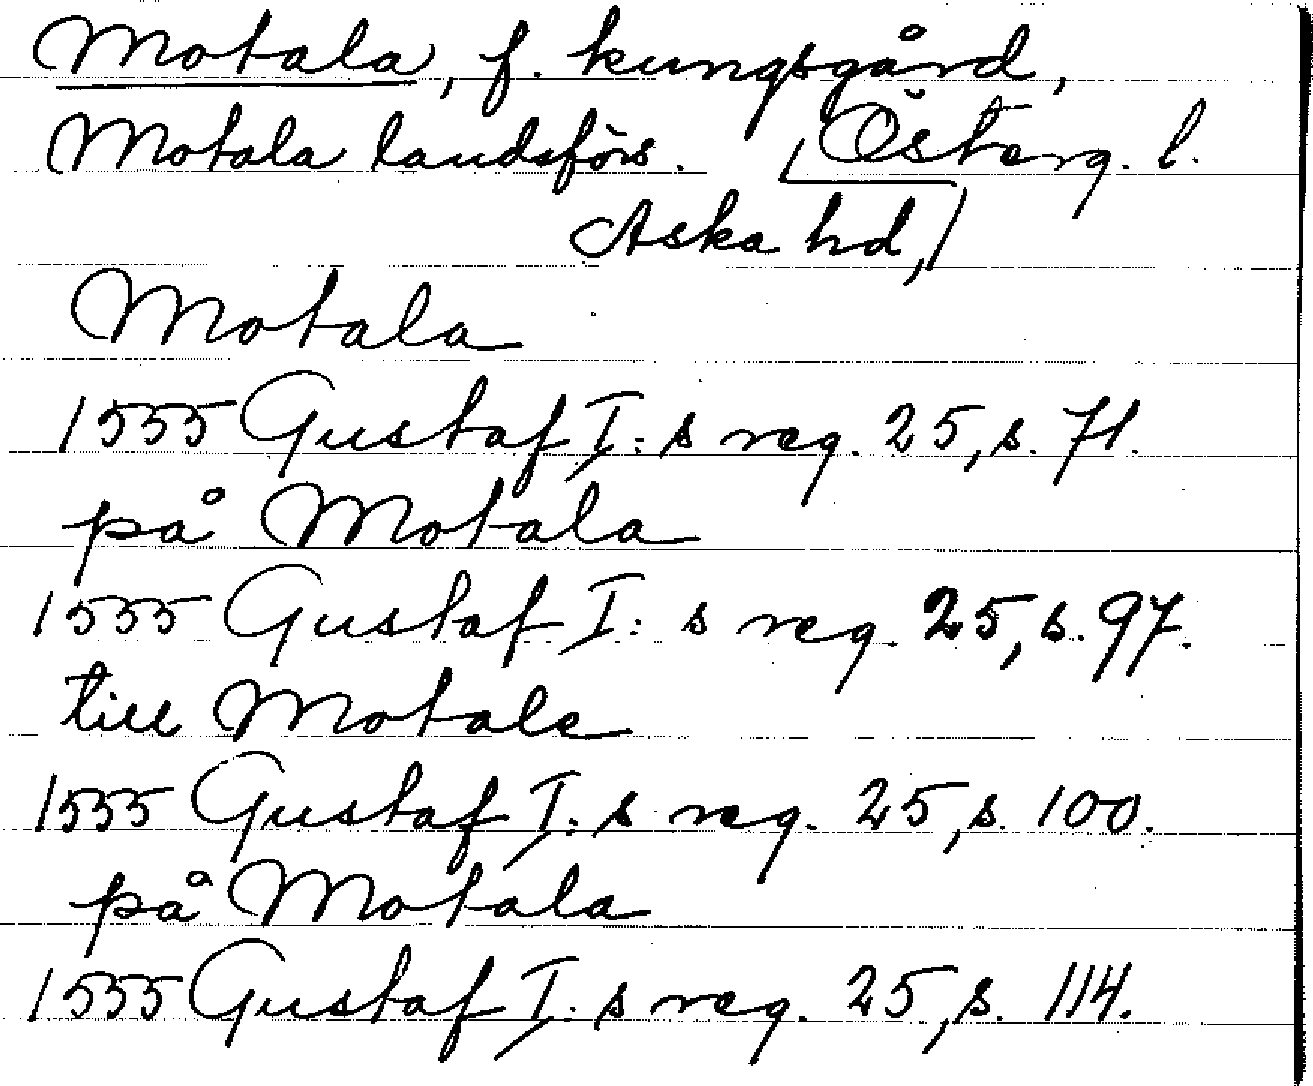 Motala, f. kungsgård,
Motala landsförs. Österg. l.
Aska hd,
Motala
1555 Gustaf I: s reg. 25, s. 71.
på Motala
1555 Gustaf I: s reg. 25, s. 97.
till Motala
1555 Gustaf I: s reg. 25, s. 100.
på Motala
1555 Gustaf I: s reg. 25, s. 114.